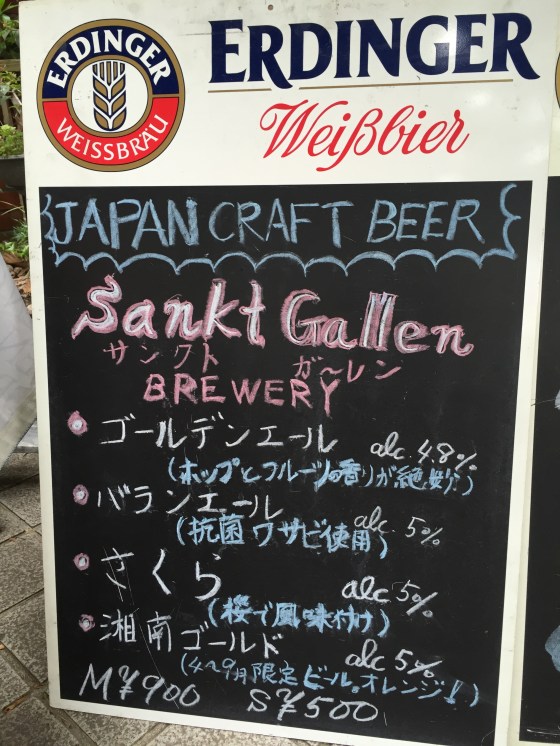 ERDINGER
WEISSBRÄU
ERDINGER
Weißbier
JAPAN CRAFT BEER
Sankt Gallen
サンクト ガ〜レン
BREWERY
ゴールデンエール alc 4.8%
(ホップとフルーツの香りが絶妙!)
バランエール alc. 5%
(抗菌ワサビ使用)
さくら alc 5%
(桜で風味付け)
湘南ゴールド alc 5%
(4〜9月限定ビール。オレンジ!)
M¥900 S¥500